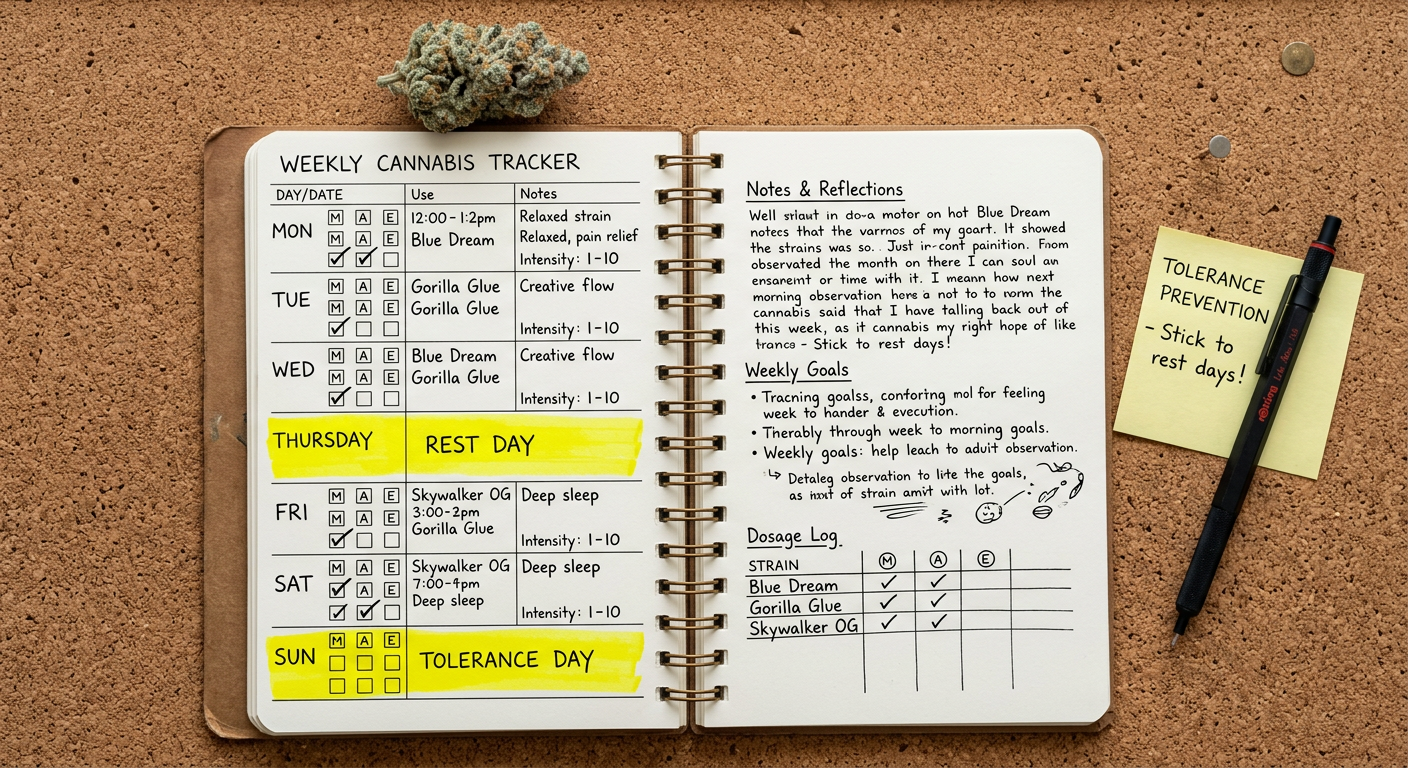 WEEKLY CANNABIS TRACKER
DAY/DATE Use Notes
MON M A E 12:00-1:2pm Relaxed strain
M A E Blue Dream Relaxed, pain relief
Intensity: 1-10
TUE M A E Gorilla Glue Creative flow
M A E Gorilla Glue
Intensity: 1-10
WED M A E Blue Dream Creative flow
M A E Gorilla Glue
Intensity: 1-10
THURSDAY REST DAY
FRI M A E Skywalker OG Deep sleep
3:00-2pm
M A E Gorilla Glue
Intensity: 1-10
SAT M A E Skywalker OG Deep sleep
7:00-4pm
A E Deep sleep
Intensity: 1-10
SUN M A E TOLERANCE DAY
Notes & Reflections
Well in do-a motor on hot Blue Dream
notes that the of my goart. It showed
the strains was so.. Just in-cont painition. From
observated the month on there I can soul an
or time with it. I meann how next
morning observation here a not to to norm the
cannabis said that I have talling back out of
this week, as it cannabis my right hope of like
- Stick to rest days!
Weekly Goals
• goalss, mol for feeling
week to hander & execution.
• Therably through week to morning goals.
• Weekly goals: help leach to aduit observation.
↳ Detaleg observation to lite the goals,
as of strain amit with lot.
Dosage Log
STRAIN M A E
Blue Dream ✓ ✓
Gorilla Glue ✓ ✓
Skywalker OG ✓ ✓
TOLERANCE
PREVENTION
- Stick to
rest days!
rotring